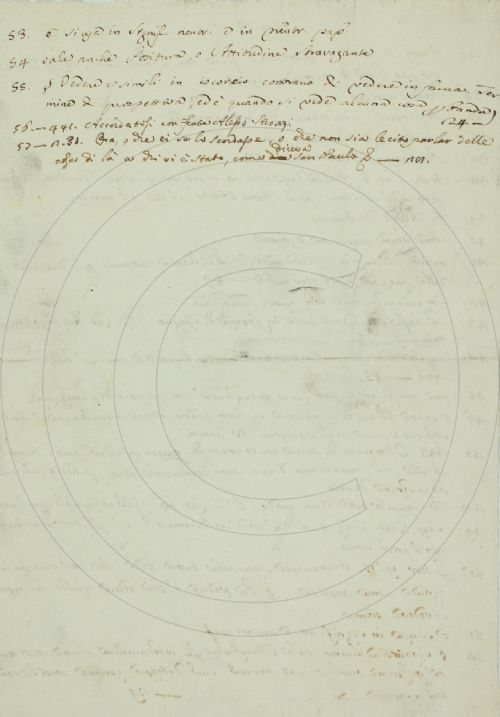 53. e si usa in signif. neutr. e in neutr. pass.
54. vale anche Positura, o Attitudine stravagante
55. p Vedere e simili in iscorcio contrario di vedere in faccia. Ter
mine di prospettiva, ed è quando si vede alcuna cosa p banda
24 —
56 — 441. Accordatosi con Piero Strozzi
57 — n. 31. Ora, o che ei se lo scordasse, o che non sia lecito parlar delle
cose di là a chi vi è stato, come diceva San Paulo &c — n.